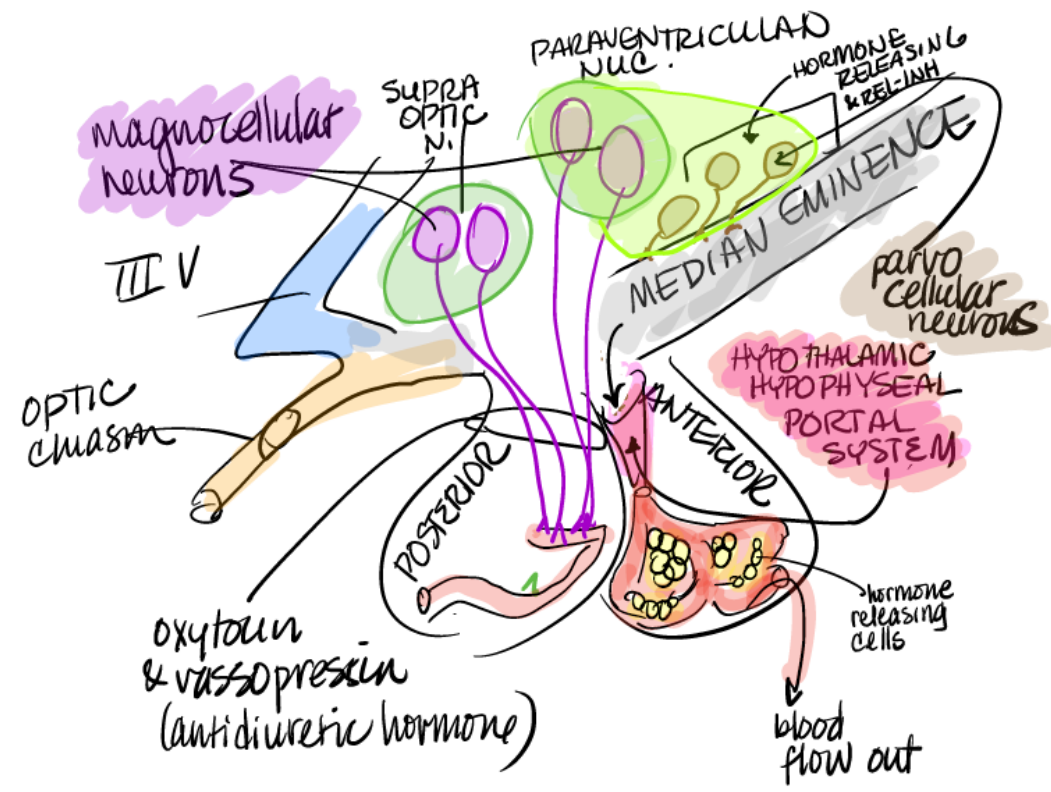 PARAVENTRICULAR
NUC.
HORMONE
RELEASING
& REL-INH
SUPRA
OPTIC
N.
magnocellular
neurons
MEDIAN EMINENCE
III V
parvo
cellular
neurons
HYPOTHALAMIC
HYPOPHYSEAL
PORTAL
SYSTEM
OPTIC
chiasm
POSTERIOR
ANTERIOR
hormone
releasing
cells
oxytocin
& vassopressin
(antidiuretic hormone)
blood
flow out